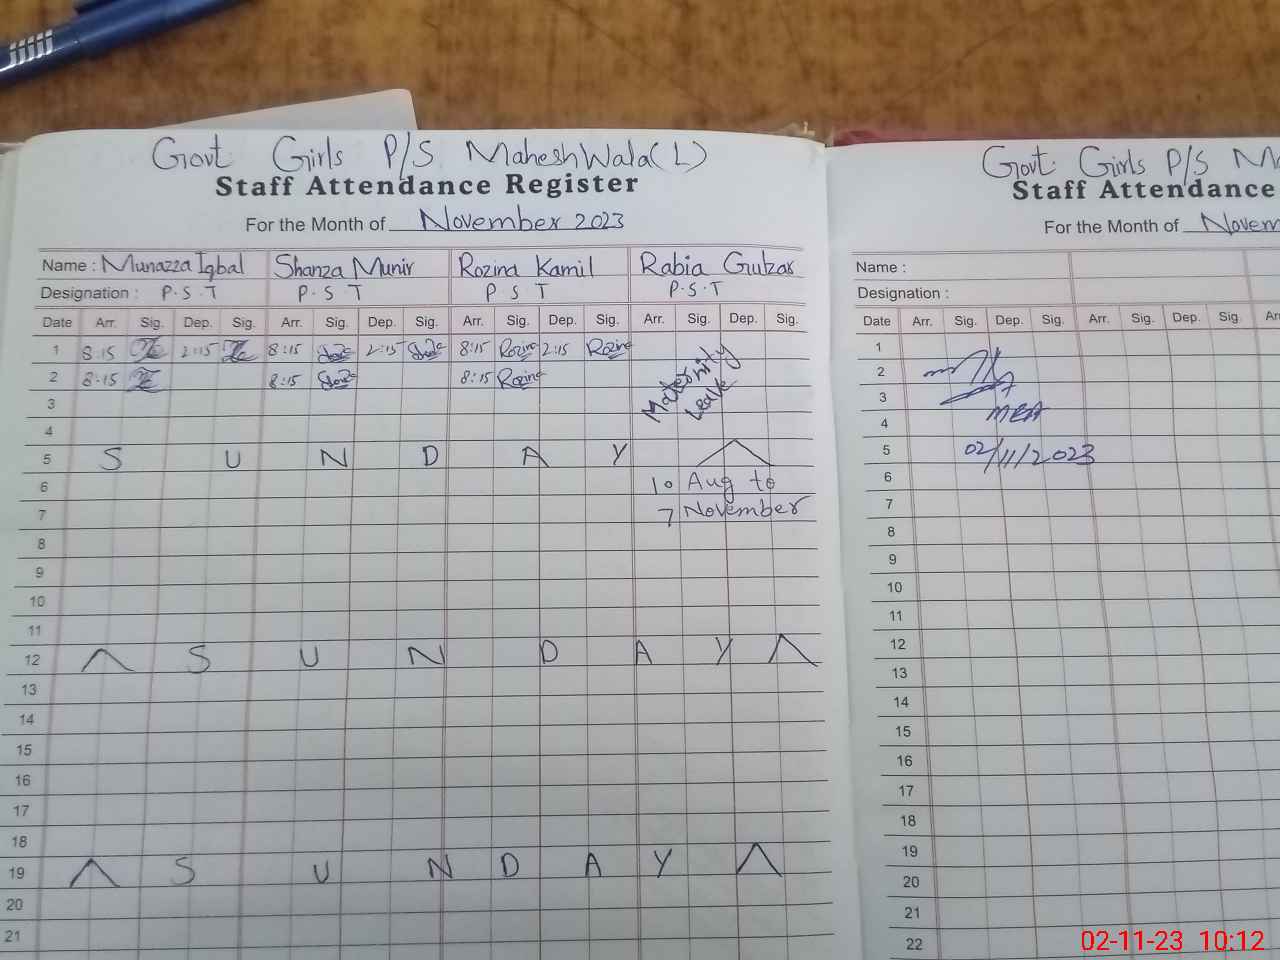 Govt Girls P/S MaheshWala(L)
Staff Attendance Register
For the Month of November 2023
Name : Munazza Iqbal Shanza Munir Rozina Kamil Rabia Gulzar
Designation : P.S.T P.S.T P S T P.S.T
Date Arr. Sig. Dep. Sig. Arr. Sig. Dep. Sig. Arr. Sig. Dep. Sig. Arr. Sig. Dep. Sig.
1 8:15 2:15 8:15 2:15 8:15 Rozina 2:15 Rozina
2 8:15 8:15 8:15 Rozina
Maternity
Leave
3
4
5 S U N D A Y
6 10 Aug to
7 7 November
8
9
10
11
12 S U N D A Y
13
14
15
16
17
18
19 S U N D A Y
20
21
Govt. Girls P/S Ma
Staff Attendance
For the Month of Novem
Name :
Designation :
Date Arr. Sig. Dep. Sig. Arr. Sig. Dep. Sig. Ar
1
2
3
4 MEA
5 02/11/2023
6
7
8
9
10
11
12
13
14
15
16
17
18
19
20
21
22
02-11-23 10:12